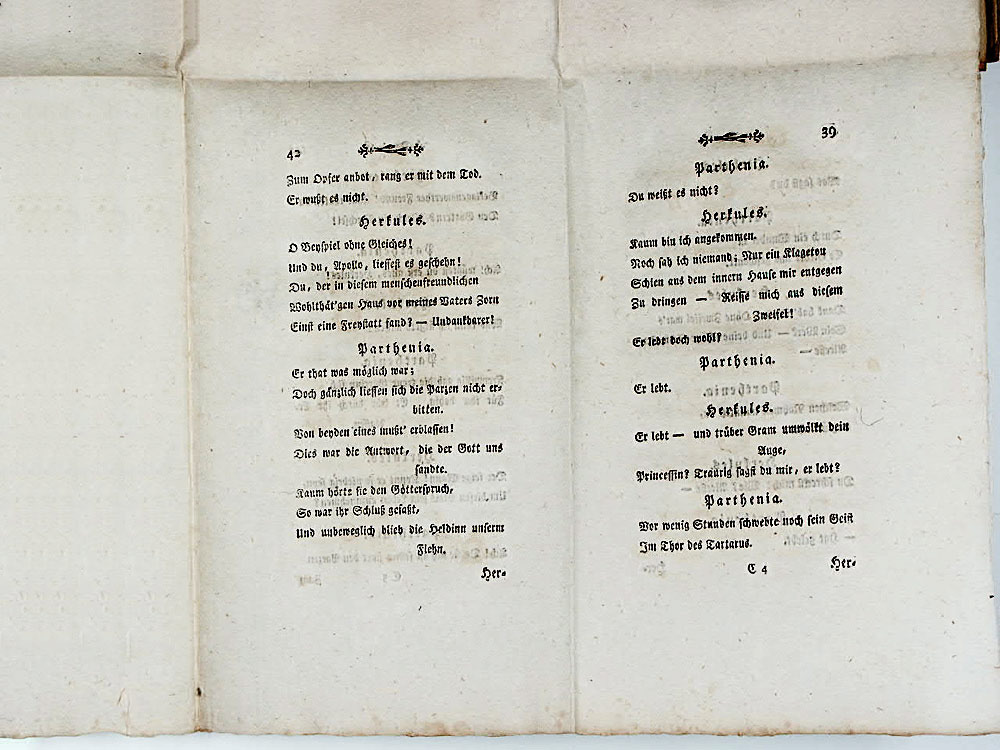 42
Zum Opfer anbot, rang er mit dem Tod.
Er wußt es nicht.
Herkules.
O Beyspiel ohne Gleiches!
Und du, Apollo, liessest es geschehn!
Du, der in diesem menschenfreundlichen
Wohlthät'gen Haus vor meines Vaters Zorn
Einst eine Freystatt fand? — Undankbarer!
Parthenia.
Er that was möglich war;
Doch gänzlich liessen sich die Parzen nicht er-
bitten.
Von beyden eines mußt' erblassen!
Dies war die Antwort, die der Gott uns
sandte.
Kaum hörte sie den Götterspruch,
So war ihr Schluß gefaßt,
Und unbeweglich blieb die Heldinn unserm
Flehn.
Her-
39
Parthenia.
Du weißt es nicht?
Herkules.
Kaum bin ich angekommen.
Noch sah ich niemand; Nur ein Klageton
Schien aus dem innern Hause mir entgegen
Zu dringen — Reisse mich aus diesem
Zweifel!
Er lebt doch wohl?
Parthenia.
Er lebt.
Herkules.
Er lebt — und trüber Gram umwölkt dein
Auge,
Princessin? Traurig sagst du mir, er lebt?
Parthenia.
Vor wenig Stunden schwebte noch sein Geist
Im Thor des Tartarus.
C 4 Her-